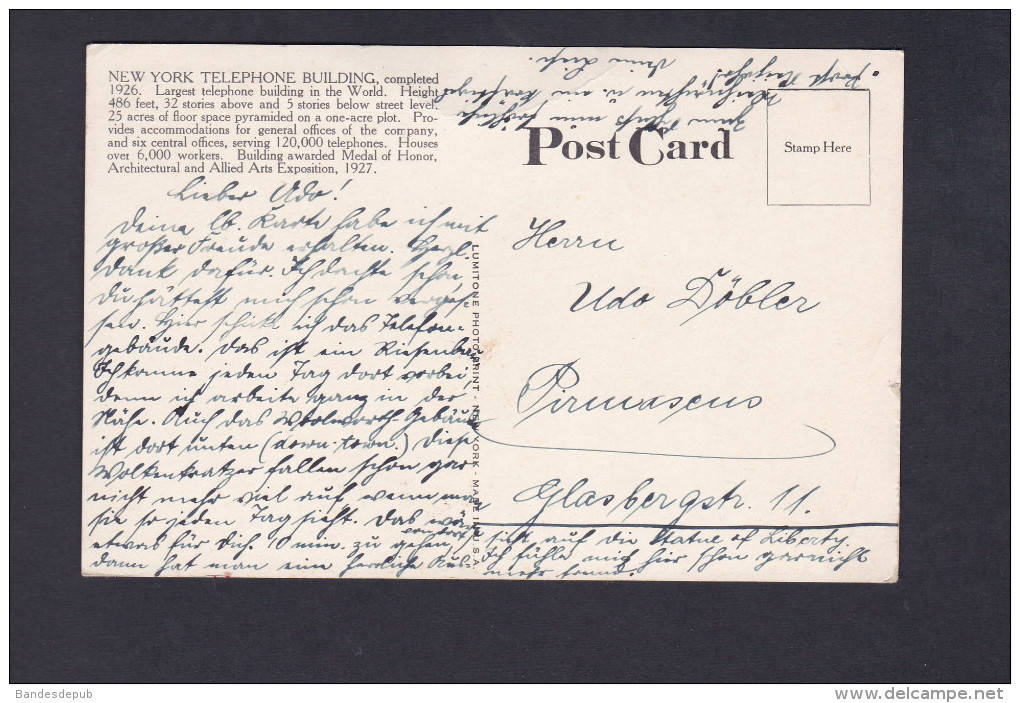 NEW YORK TELEPHONE BUILDING, completed
1926. Largest telephone building in the World. Height
486 feet, 32 stories above and 5 stories below street level.
25 acres of floor space pyramided on a one-acre plot. Pro-
vides accommodations for general offices of the company,
and six central offices, serving 120,000 telephones. Houses
over 6,000 workers. Building awarded Medal of Honor,
Architectural and Allied Arts Exposition, 1927.
Lieber Udo!
Deine lb. Karte habe ich mit
großer Freude erhalten. Herzl.
Dank dafür. Ich dachte schon,
Du hättest mich schon verges-
sen. Hier schicke ich das Telefon-
gebäude. Das ist ein Riesenbau
Ich komme jeden Tag dort vorbei
denn ich arbeite ganz in der
Nähe. Auch das Woolworth-Gebäude
ist dort unten (down-town.) Diese
Wolkenkratzer fallen schon gar
nicht mehr viel auf wenn man
sie so jeden Tag sieht. Das wäre
etwas für Dich. 10 min. zu gehen von dort
dann hat man eine herrliche Aus-
sicht auf die Statue of Liberty.
Ich fühle mich hier schon garnicht
mehr fremd.
Zum
Weihnachten u. ein
Neujahr!
Dein
LUMITONE PHOTOPRINT - NEW YORK. MADE IN U.S.A.
Post Card
Stamp Here
Herrn
Udo Döbler
Pirmasens
Glasbergstr. 11.
Bandesdepub
www.delcampe.net